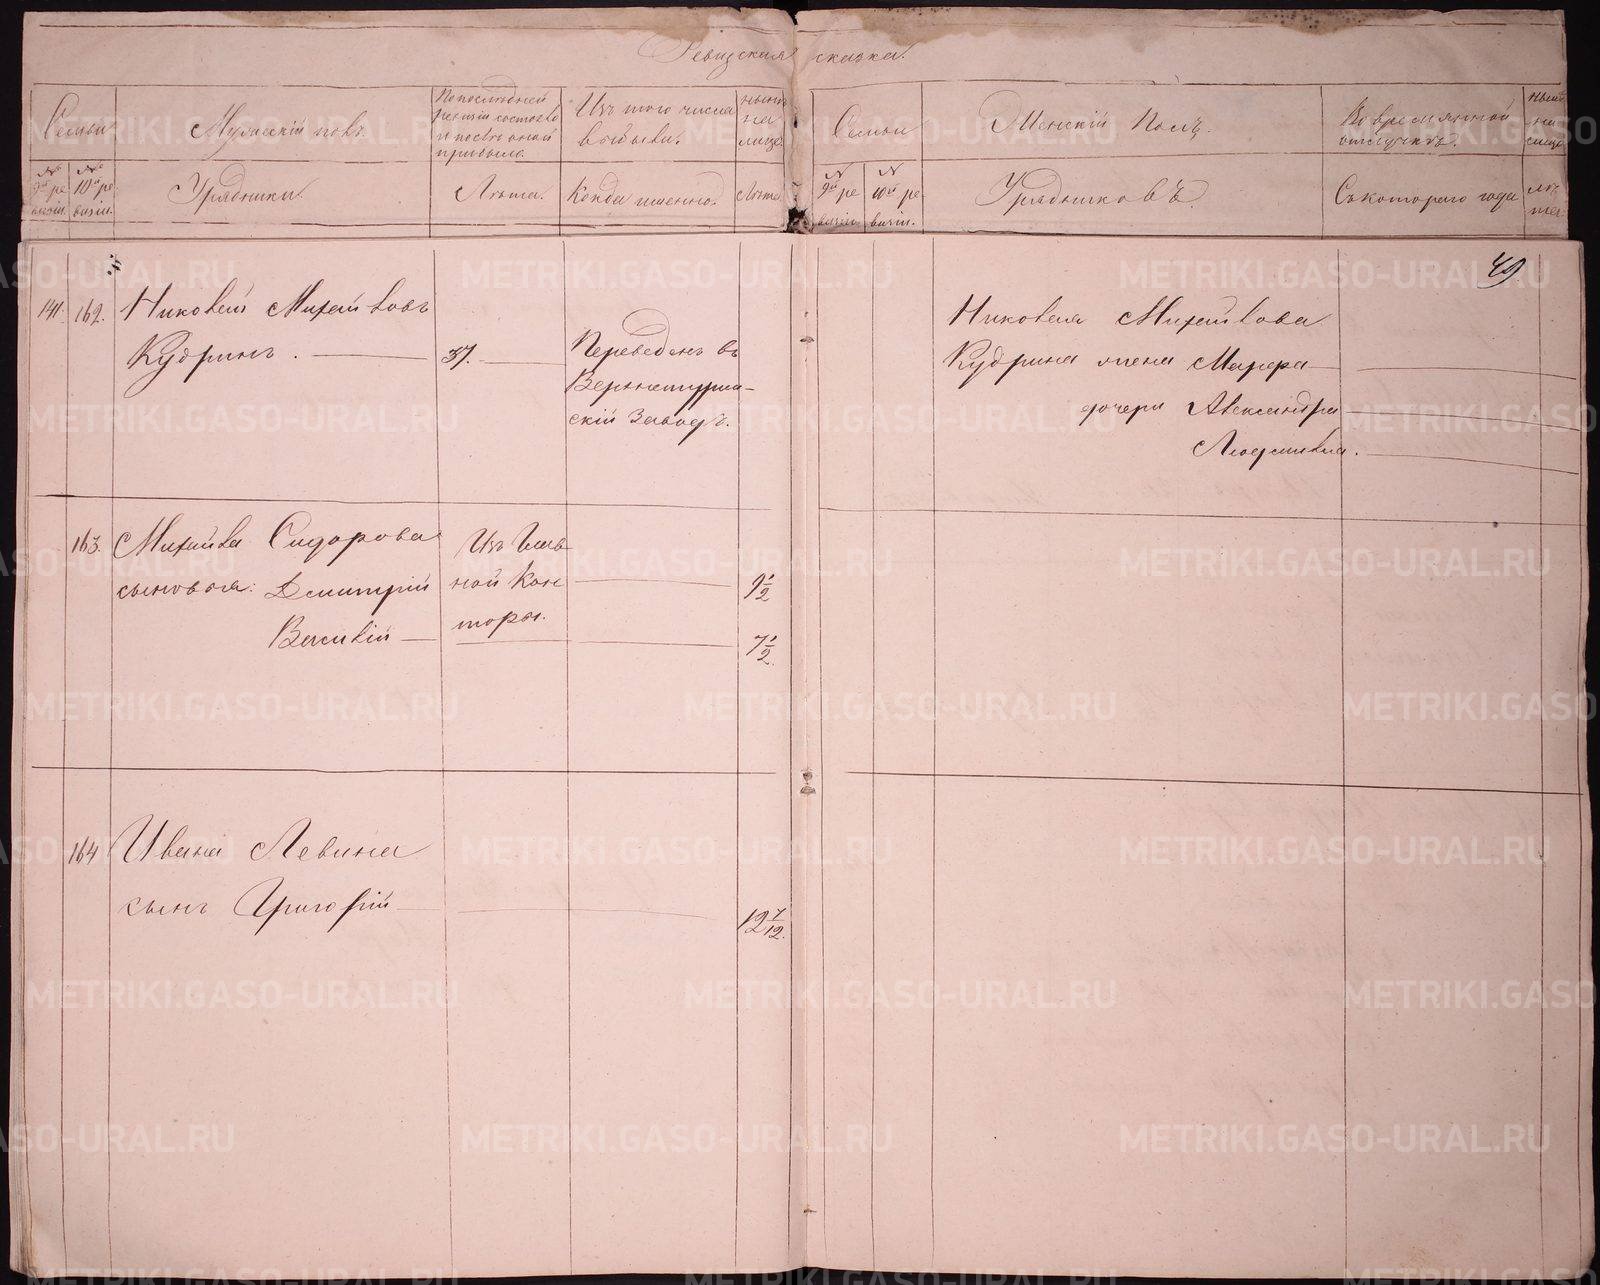 Ревизская сказка.
Семьи
Мужескій полъ
По последней
ревизіи состояло
и после оной
прибыло.
Изъ того числа
выбыли.
ныне
на
лицо
№
9й ре
визіи.
№
10й ре
визіи.
Урядники.
Лета.
Когда именно.
Лета
Семьи
Женскій Полъ.
Во временной
отлучке.
ныне
на
лицо
№
9й ре
визіи
№
10й ре
визіи.
Урядниковъ.
Съ котораго года
ле
та
49
141.
162.
Николай Михайловъ
Кудринъ.
37.
Переведенъ въ
Верхнетурин-
скій Заводъ.
Николая Михайлова
Кудрина жена Марфа
дочери Александра
Людмила.
163.
Михайла Сидорова
сыновья: Дмитрій
Василій
Изъ Глав
ной Кон
торы.
9 1/2
7 1/2
164
Ивана Левина
сынъ Григорій
12 7/12.
METRIKI.GASO-URAL.RU